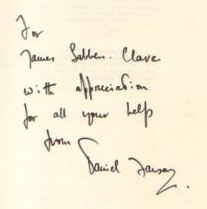 For
James Sabben-Clare
with appreciation
for all your help
from
Daniel